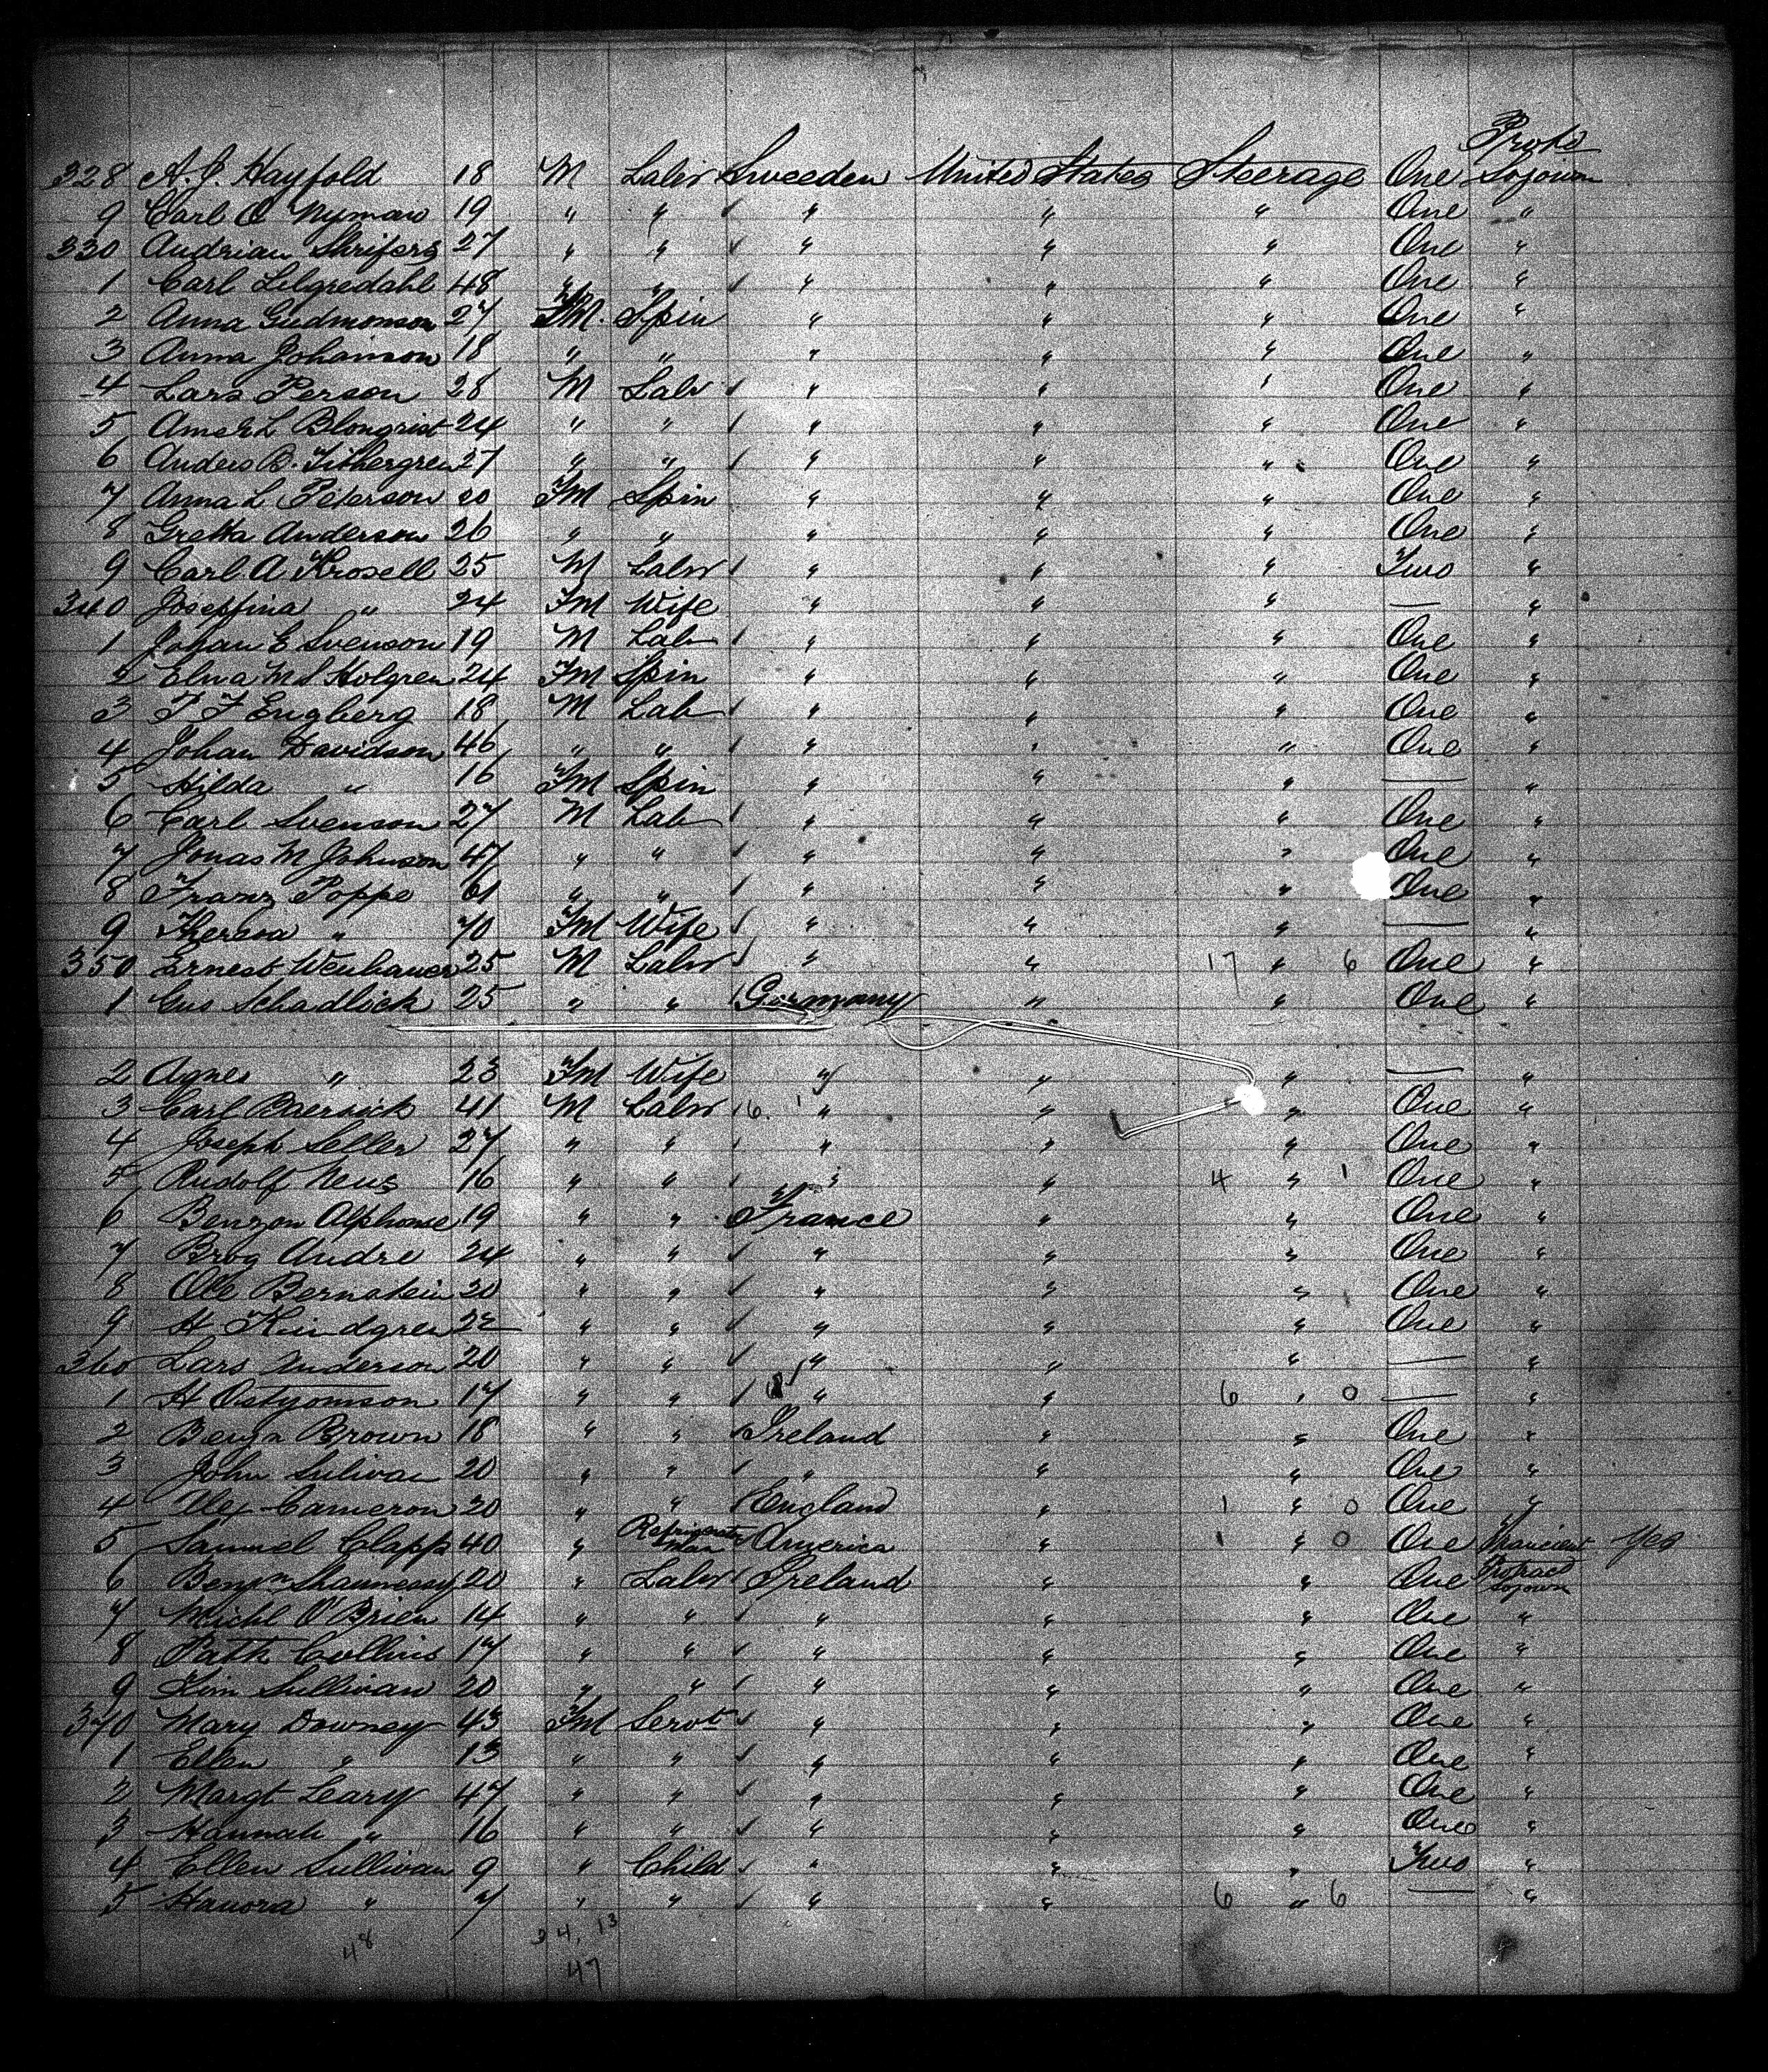 Protd
328 A. J. Hayfold 18 M Labr Sweeden United States Steerage One Sojourn
9 Carl O Nyman 19 " " " " " One "
330 Audrian 27 " " " " " One "
1 Carl Lilgredahl 48 " " " " " One "
2 Anna Gudmonson 27 FM. Spin " " " One "
3 Anna Johanson 18 " " " " " One "
4 Lars Person 28 M Labr " " " One "
5 L Blonqrist 24 " " " " " One "
6 Anders B. 27 " " " " " One "
7 Anna L Peterson 20 FM Spin " " " One "
8 Gretta Anderson 26 " " " " " One "
9 Carl A Krosell 25 M Labr " " " Two "
340 Joseffina " 24 FM Wife " " " — "
1 Johan E Svenson 19 M Lab " " " One "
2 Elna M S Holgren 24 FM Spin " " " One "
3 F F Engberg 18 M Lab " " " One "
4 Johan Davidson 46 " " " " " One "
5 Hilda " 16 FM Spin " " " — "
6 Carl Svenson 27 M Lab " " " One "
7 Jonas M Johnson 47 " " " " " One "
8 Franz Poppe 61 " " " " " One "
9 Theresa " 70 FM Wife " " " — "
350 Ernest Weuhauer 25 M Labr " " 17 " 6 One "
1 Gus Schadlock 25 " " Germany " " One "
2 Agnes " 23 FM Wife " " " — "
3 Carl Baersick 41 M Labr " " " One "
4 Joseph Seller 27 " " " " " One "
5 Rudolf Neus 16 " " " " 4 " 1 One "
6 Benzon Alphonse 19 " " France " " One "
7 Brog Andre 24 " " " " " One "
8 Ole Bernstein 20 " " " " " One "
9 H Kindgren 22 " " " " " One "
360 Lars Anderson 20 " " " " " — "
1 H Ostyomson 17 " " " " 6 " 0 — "
2 Benja Brown 18 " " Ireland " " One "
3 John Sulivan 20 " " " " " One "
4 Alex Cameron 20 " " England " 1 " 0 One "
5 Samuel Clapp 40 " Refrigerator Man America " 1 " 0 One Trancient Yes
6 Benjn Shaunessy 20 " Labr Ireland " " One Protract Sojourn
7 Michl O'Brien 14 " " " " " One "
8 Patk Collins 17 " " " " " One "
9 Tim Sullivan 20 " " " " " One "
370 Mary Downey 43 FM Servt " " " One "
1 Ellen " 13 " " " " " One "
2 Margt Leary 47 " " " " " One "
3 Hannah " 16 " " " " " One "
4 Ellen Sullivan 9 " Child " " " Two "
5 Hanora " 7 " " " " 6 " 6 — "
48 34, 13
47